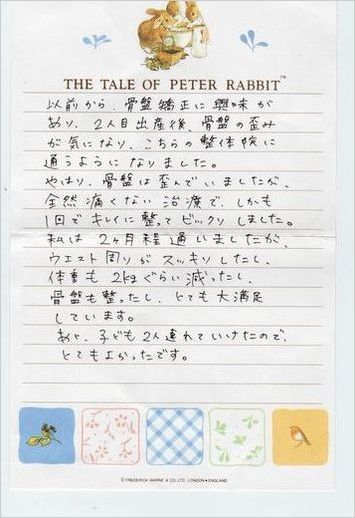 THE TALE OF PETER RABBIT™
以前から、骨盤矯正に興味が
あり、2人目出産後、骨盤の歪み
が気になり、こちらの整体院に
通うようになりました。
やはり、骨盤は歪んでいましたが、
全然痛くない治療で、しかも
1回でキレイに整ってビックリしました。
私は2ヶ月程通いましたが、
ウエスト周りがスッキリしたし、
体重も2kgぐらい減ったし、
骨盤も整ったし、とても大満足
しています。
あと、子ども2人連れていけたので、
とてもよかったです。
© FREDERICK WARNE & CO. LTD. LONDON ENGLAND